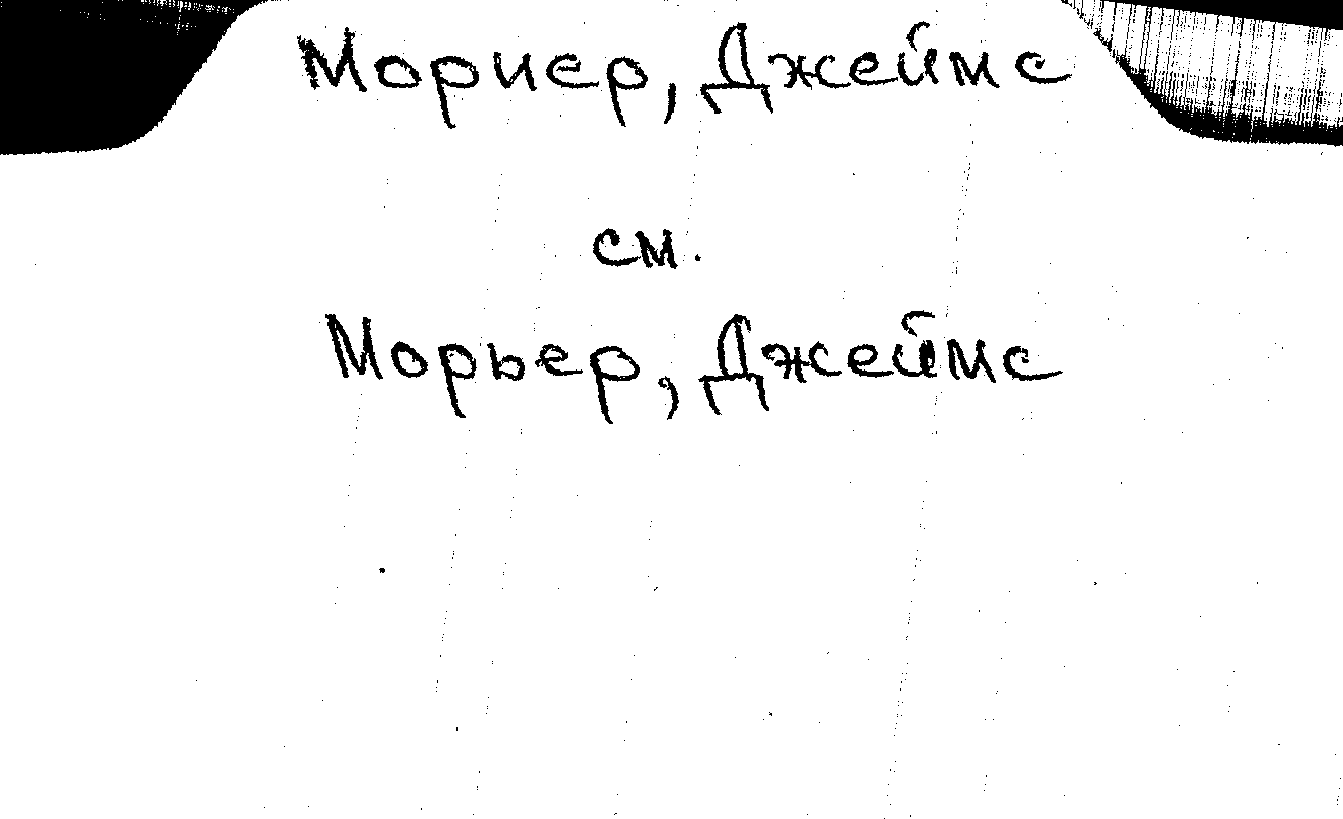 Мориер, Джеймс
см.
Морьер, Джеймс